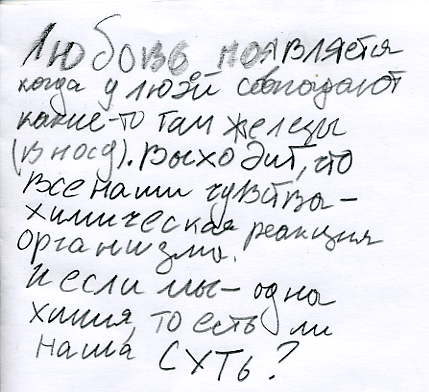 Любовь появляется
когда у люэй совпадают
какие-то там железы
(в носу). Выходит, что
все наши чувства –
химическая реакция
организма.
И если мы – одна
химия, то есть ли
наша СУТЬ?